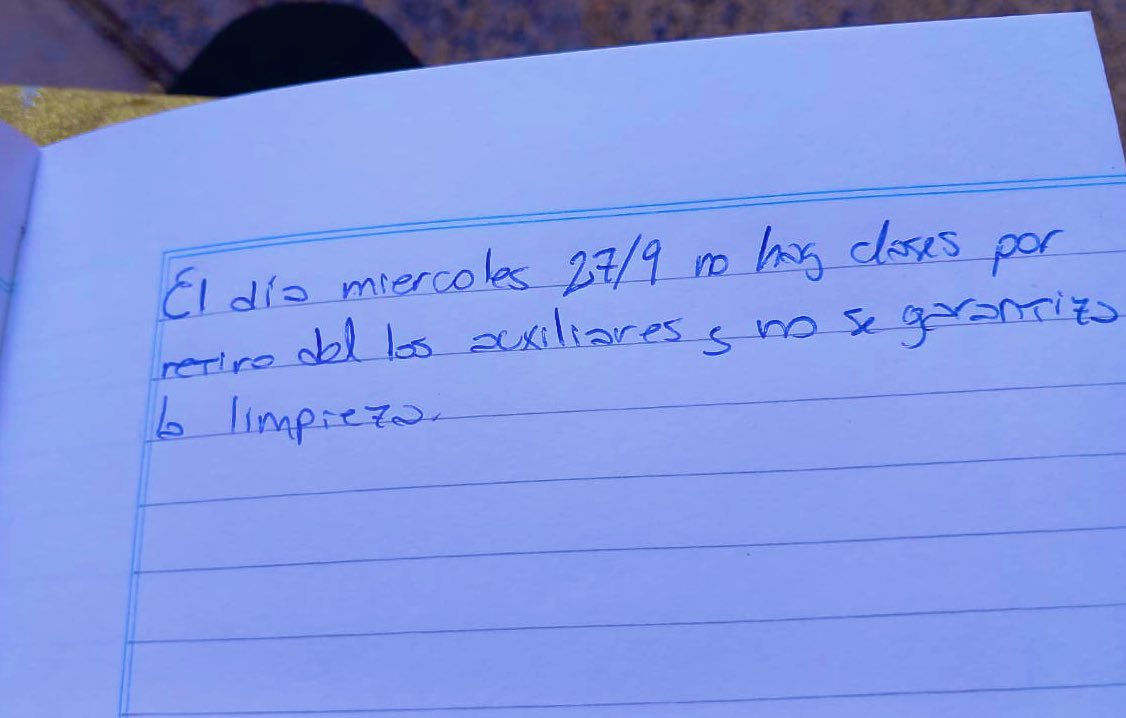 El día miercoles 27/9 no hay clases por
retiro del los auxiliares y no se garantiza
la limpieza.